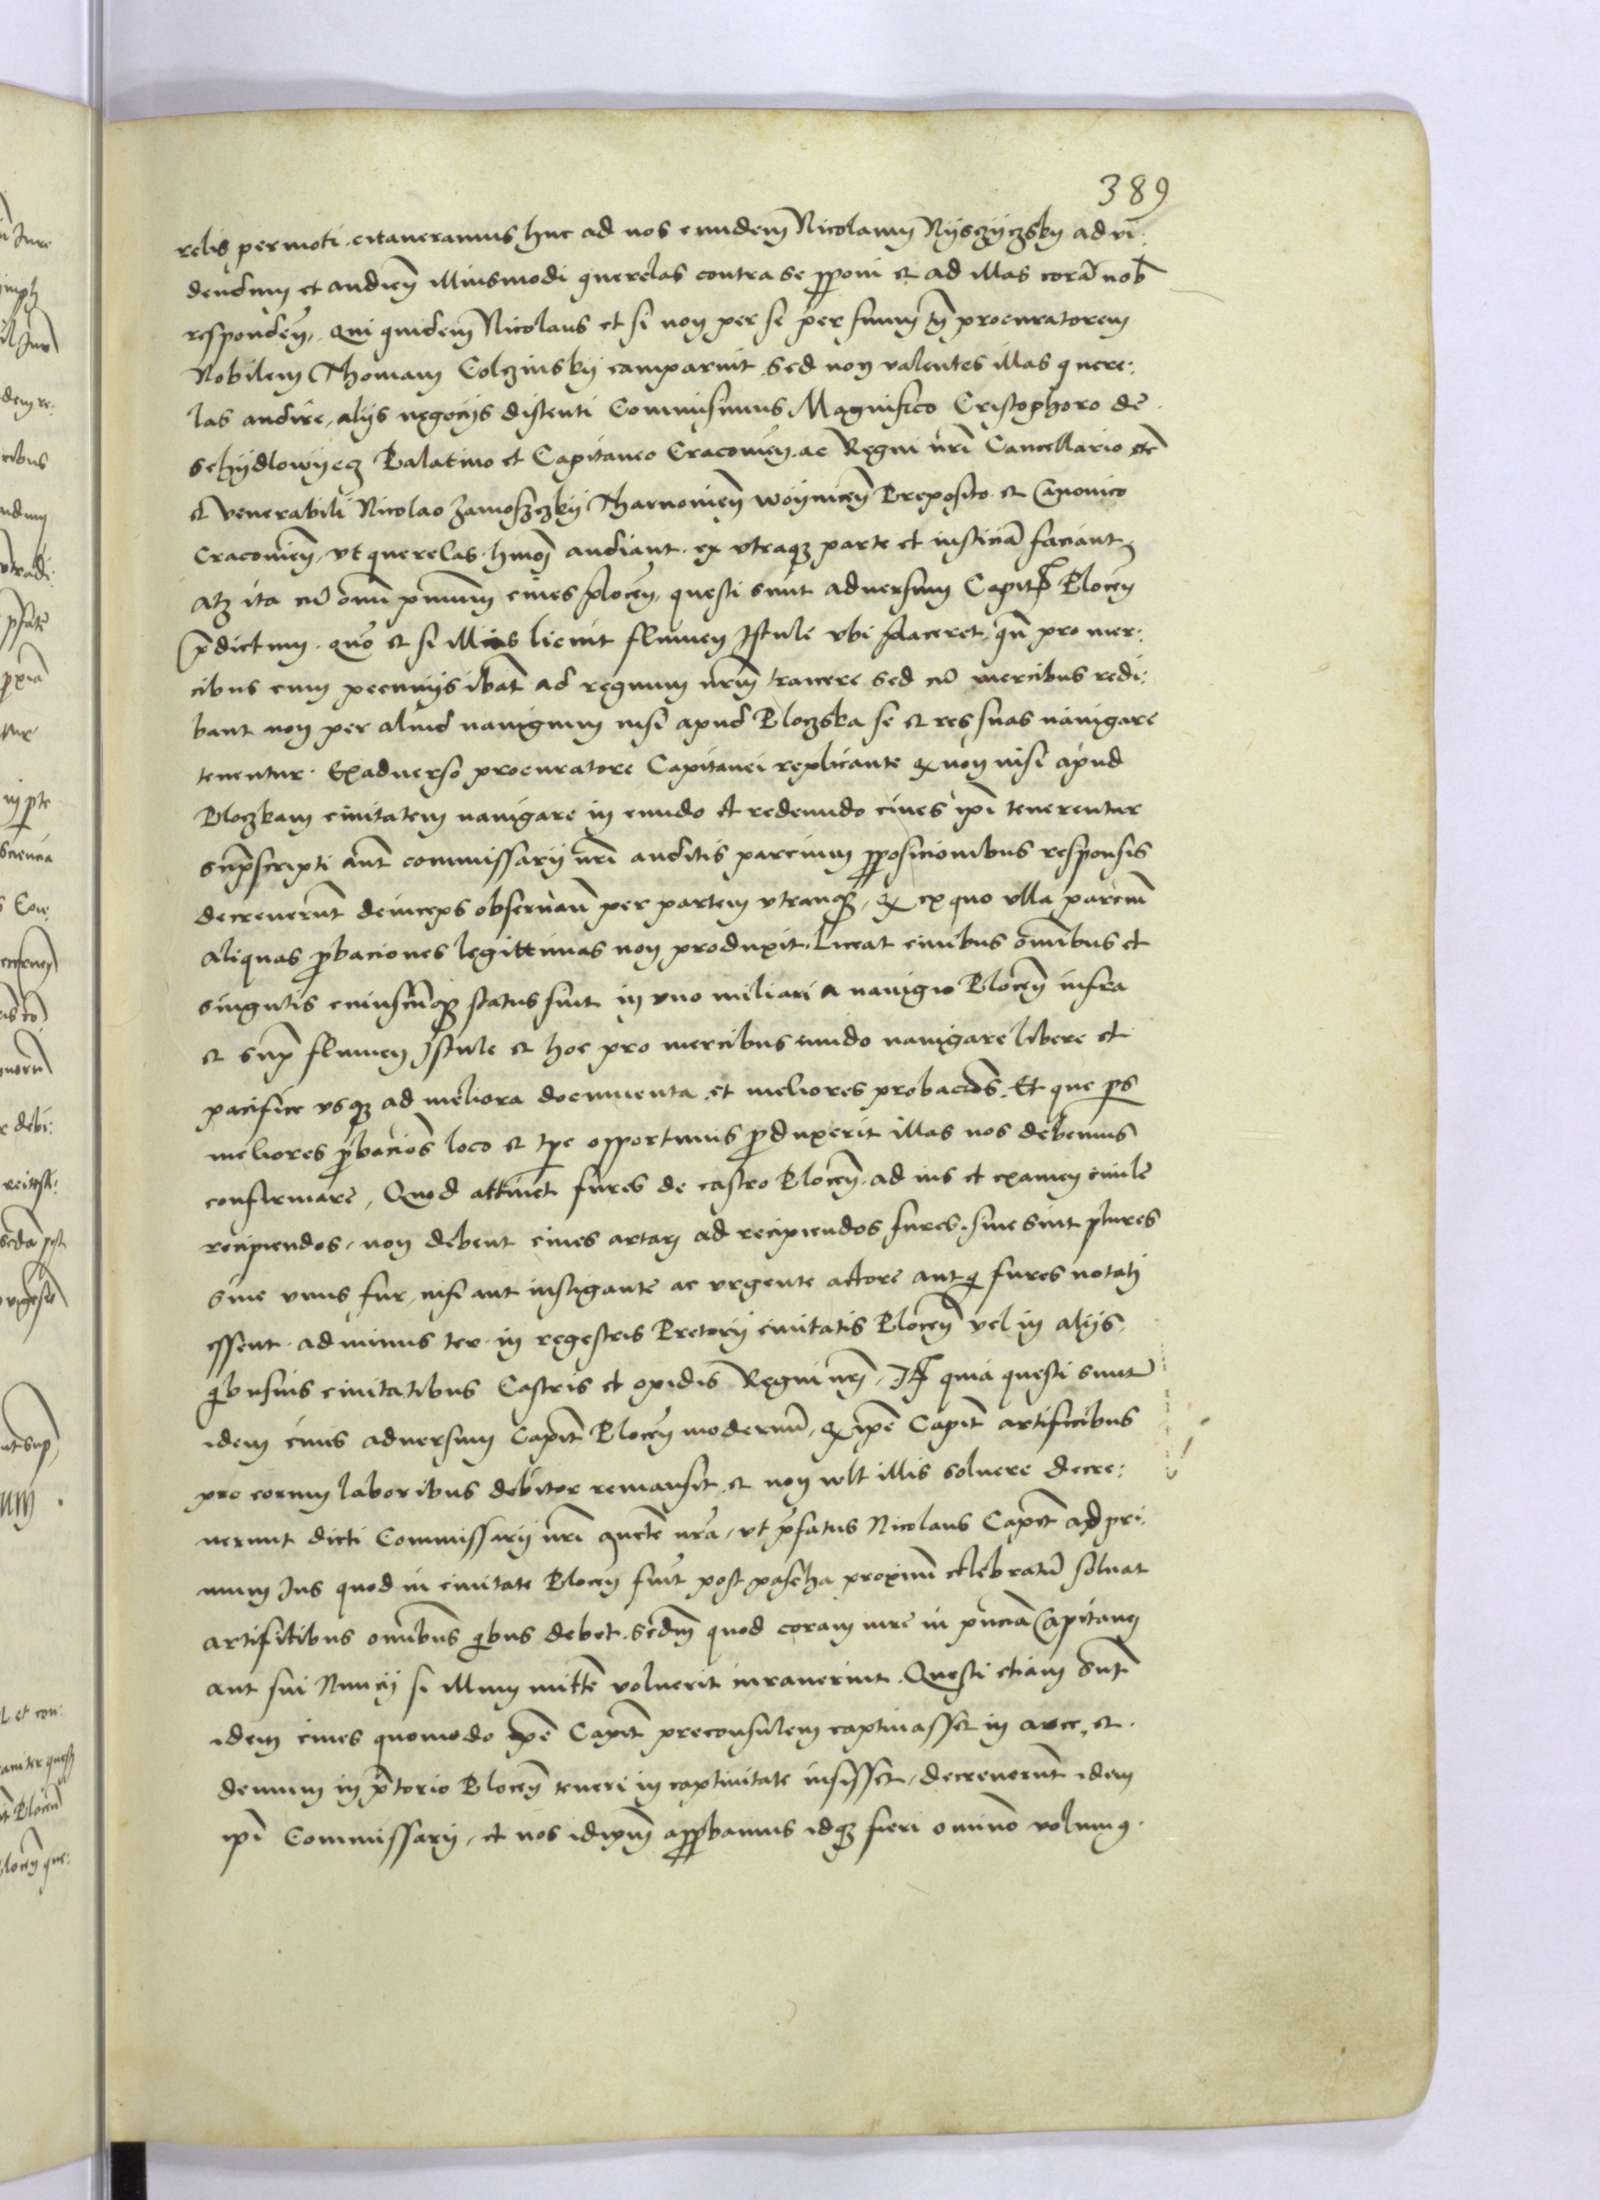 389
relis permoti citaueramus huc ad nos eundem Nicolaum Nÿsczÿczskÿ ad vi:
dendum et audien̄ illiusmodi querelas contra se ꝓponi et ad illas corā nob̄
responden̄, Qui quidem Nicolaus et si non per se per suum tn̄ procuratorem
Nobilem Thomam Colczinskÿ camparuit sed non valentes illas quere:
las audire, alÿs negocÿs distenti Commisimus Magnifico Cristophoro de
Schÿdlowÿecz Palatino et Capitaneo Cracouien̄. ac Regni nr̄i Cancellario etc̄
et venerabili Nicolao Zamosczkÿ Tharnouien̄ Woÿnicen̄ Preposito et Canonico
Cracouien̄, vt querelas hmōi audiant ex vtraqꝫ parte et iusticiā faciant
atqꝫ ita cū om̄i primum ciues plocen̄, questi sunt aduersum Capitm̄ Plocen̄
p̄dictum. quo et si illis licuit flumen Istule vbi placeret, qn̄ pro mer:
cibus cum pecunÿs ibāt ad regnum nr̄m traicere sed cū mercibus redi:
bant non per aliud nauigium nisi apud Ploczska se et res suas nauigare
tenentur. Exaduerso procuratore Capitanei replicante ꝙ non nisi apud
Ploczkam ciuitatem nauigare in eundo et redeundo ciues ip̄i tenerentur
suprascripti aūt commissarÿ nr̄i auditis parcium ꝓposicionibus responsis
decreuerunt deinceps obseruan̄ per partem vtranqꝫ, ꝙ ex quo vlla parcium
aliquas ꝓbaciones legittimas non produxit. Liceat ciuibus omnibus et
singulis cuiuscūqꝫ status sint in vno miliari a nauigio Plocen̄ infra
et supra flumen Istule et hoc pro mercibus eundo nauigare libere et
pacifice vsqꝫ ad meliora documenta et meliores probacōes. Et que pars
meliores ꝓbaciōes loco et tp̄e opportunis ꝓduxerit illas nos debemus
confirmare, Quod attinet fures de castro Plocen̄ ad ius et examen ciuile
recipiendos, non debent ciues artari ad recipiendos fures, siue sint plures
siue vnus fur, nisi aut instigante ac vrgente actore aut qͥ fures notati
essent ad minus ter in regestris Pretorÿ ciuitatis Plocen̄ vel in alÿs
qͥbusuis ciuitatibus Castris et opidis Regni nr̄i, Itē quia questi sunt
idem ciues aduersum Capit̄ Plocen̄ modernū, ꝙ ip̄e Capit̄ artificibus
pro eorum laboribus debitor remansit et non wlt illis soluere decre:
uerunt dicti Commissarÿ nr̄i vt p̄fatus Nicolaus Capit̄ ad pri:
mum Ius quod in ciuitate Plocen̄ fuit post pascha proximū celebratū soluat
artificibus omnibus qͥbus debet. scdm̄ quod coram iure in pn̄cia Capitanei
aut sui Nuncÿ si illum mittē voluerit iurauerint. Questi etiam sunt
idem ciues quomodo ip̄e Capit̄ preconsulem captiuasset in arce, et
demum in p̄torio Plocen̄ teneri in captiuitate iussisset, decreuerunt idem
ip̄i Commissarÿ, et nos idip̄m approbamus idqꝫ fieri omnino volumus.